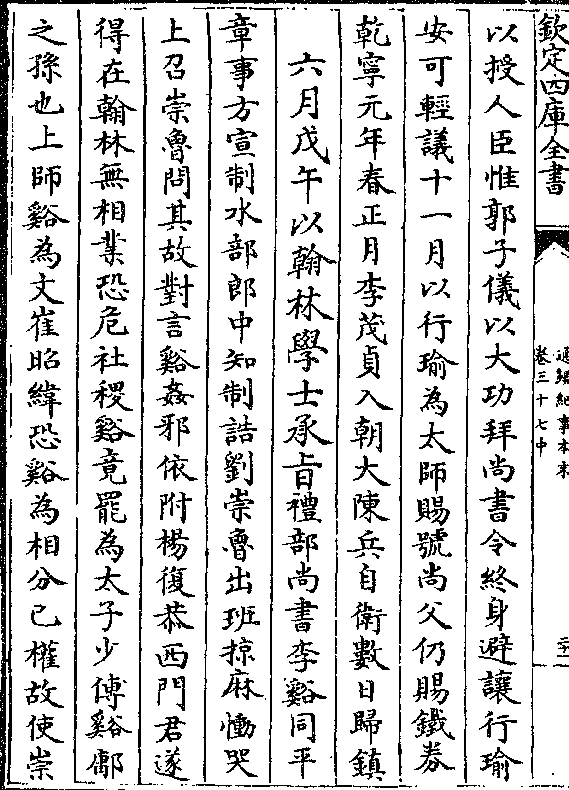 欽定四庫全書
通鑑紀事本末
卷三十七中
以授人臣惟郭子儀以大功拜尚書令終身避讓行瑜
安可輕議十一月以行瑜為太師賜號尚父仍賜鐵券
乾寧元年春正月李茂貞入朝大陳兵自衛數日歸鎮
六月戊午以翰林學士承旨禮部尚書李谿同平
章事方宣制水部郎中知制誥劉崇魯出班掠麻慟哭
上召崇魯問其故對言谿姦邪依附楊復恭西門君遂
得在翰林無相業恐危社稷谿竟罷為太子少傅谿鄘
之孫也上師谿為文崔昭緯恐谿為相分已權故使崇